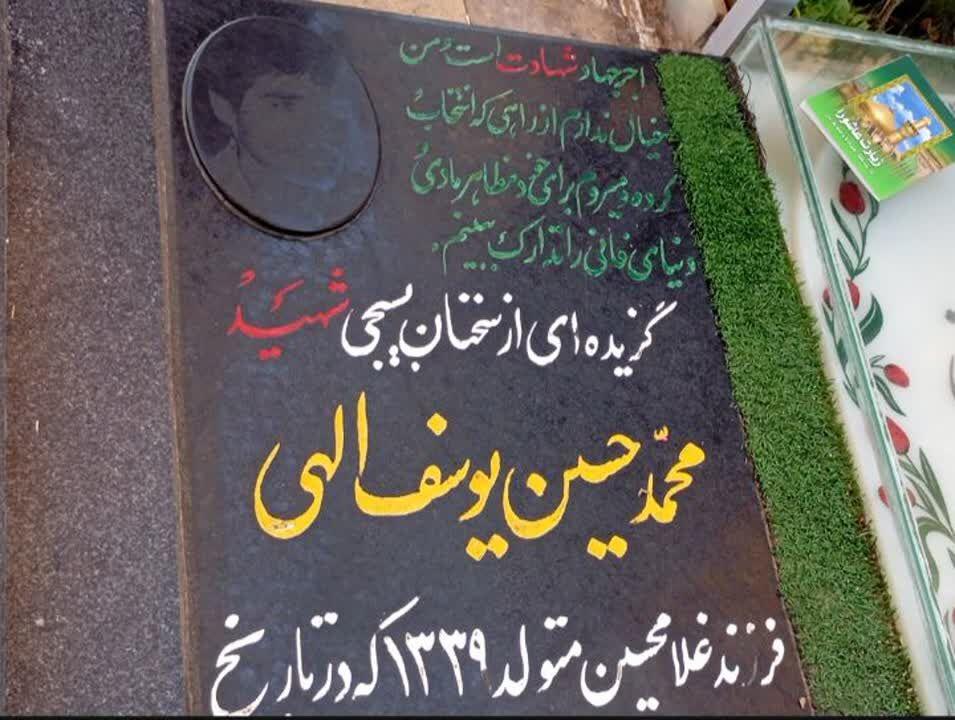 اجر جهاد شهادت است و من
خیال ندارم از راهی که انتخاب
کرده و میروم برای خود مظاهر مادی
دنیای فانی را تدارک ببینم.
گزیده ای از سخنان بسیجی شهید
محمد حسین یوسف الهی
فرزند غلامحسین متولد ۱۳۳۹ که در تاریخ
زیارت عاشورا